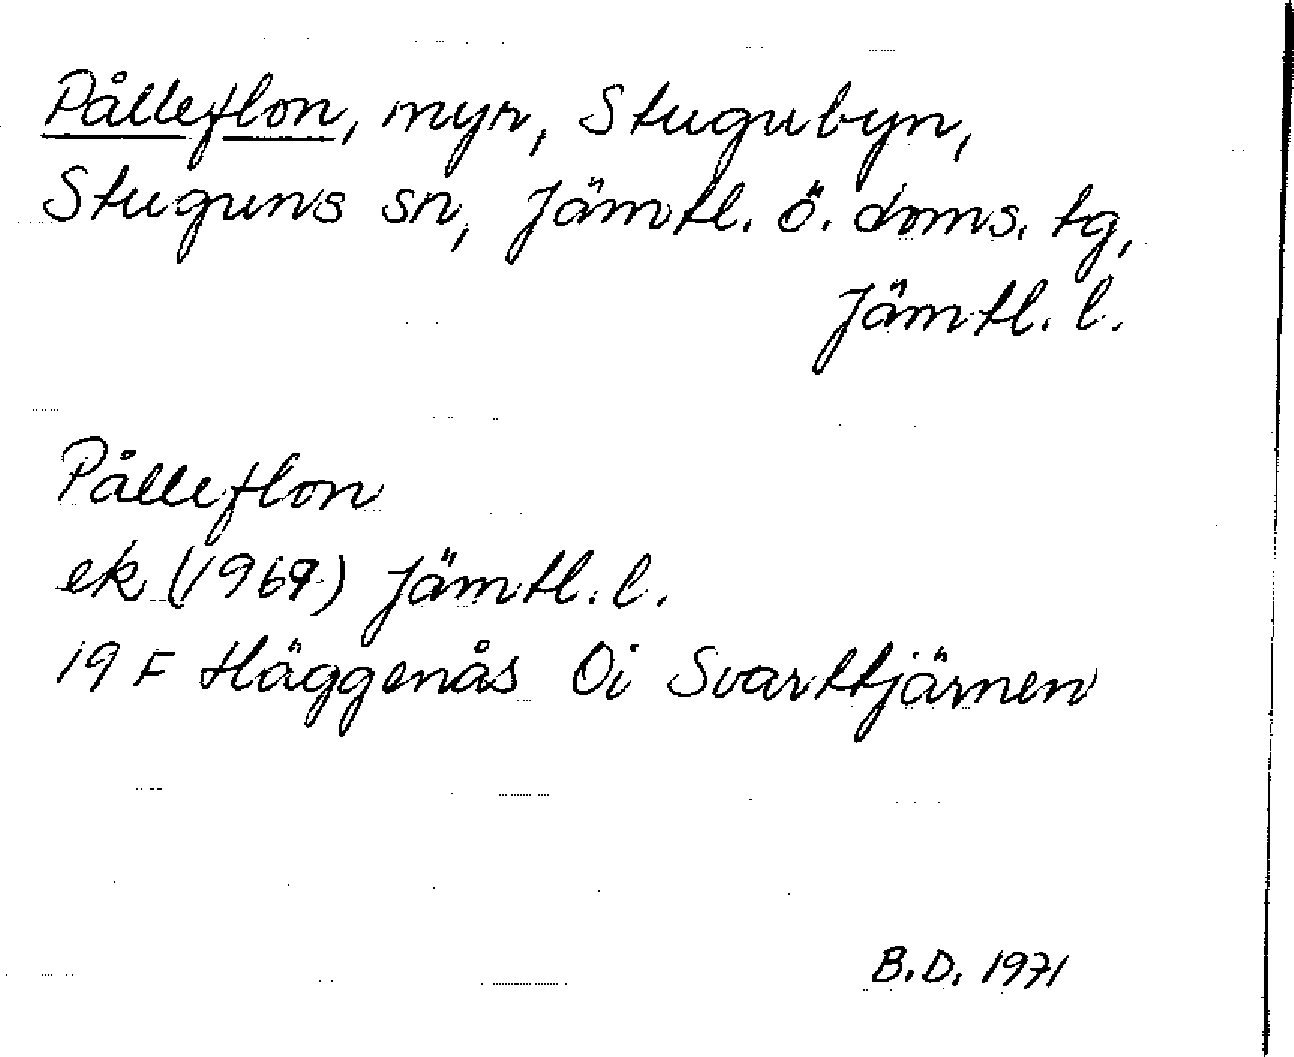 Pålleflon, myr, Stugubyn,
Stuguns sn, Jämtl. ö. doms. tg,
Jämtl. l.
Pålleflon
ek (1969) Jämtl. l.
19 F Häggenås 0i Svarttjärnen
B.D. 1971